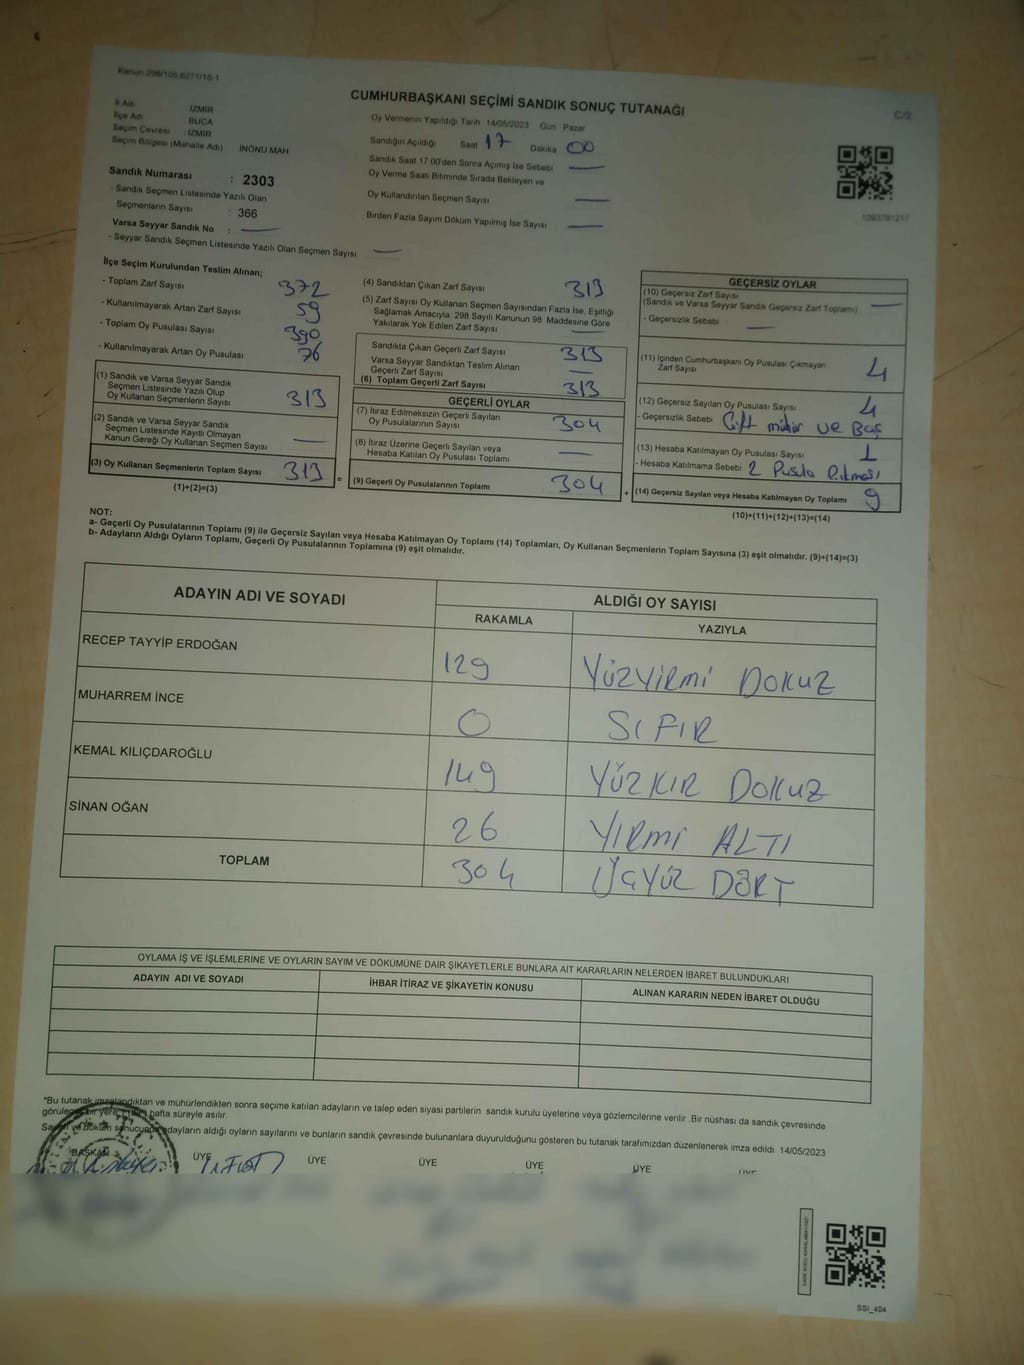 Kanun:298/106.6271/18-1
CUMHURBAŞKANI SEÇİMİ SANDIK SONUÇ TUTANAĞI
C/2
İl Adı İZMİR
İlçe Adı BUCA
Seçim Çevresi : İZMİR
Seçim Bölgesi (Mahalle Adı) İNÖNÜ MAH
Sandık Numarası : 2303
- Sandık Seçmen Listesinde Yazılı Olan
Seçmenlerin Sayısı : 366
Varsa Seyyar Sandık No : —
- Seyyar Sandık Seçmen Listesinde Yazılı Olan Seçmen Sayısı —
Oy Vermenin Yapıldığı Tarih 14/05/2023 Gün Pazar
Sandığın Açıldığı Saat 17 Dakika 00
Sandık Saat 17.00'den Sonra Açımış İse Sebebi —
Oy Verme Saati Bitiminde Sırada Bekleyen ve
Oy Kullandırılan Seçmen Sayısı —
Birden Fazla Sayım Döküm Yapılmış İse Sayısı —
1093791217
İlçe Seçim Kurulundan Teslim Alınan;
- Toplam Zarf Sayısı 372
- Kullanılmayarak Artan Zarf Sayısı 59
- Toplam Oy Pusulası Sayısı 390
- Kullanılmayarak Artan Oy Pusulası 76
(1) Sandık ve Varsa Seyyar Sandık
Seçmen Listesinde Yazılı Olup
Oy Kullanan Seçmenlerin Sayısı 313
(2) Sandık ve Varsa Seyyar Sandık
Seçmen Listesinde Kayıtlı Olmayan
Kanun Gereği Oy Kullanan Seçmen Sayısı —
(3) Oy Kullanan Seçmenlerin Toplam Sayısı 313
(1)+(2)=(3)
(4) Sandıktan Çıkan Zarf Sayısı 313
(5) Zarf Sayısı Oy Kullanan Seçmen Sayısından Fazla İse, Eşitliği
Sağlamak Amacıyla, 298 Sayılı Kanunun 98 Maddesine Göre
Yakılarak Yok Edilen Zarf Sayısı —
Sandıkta Çıkan Geçerli Zarf Sayısı 313
Varsa Seyyar Sandıktan Teslim Alınan
Geçerli Zarf Sayısı —
(6) Toplam Geçerli Zarf Sayısı 313
GEÇERLİ OYLAR
(7) İtiraz Edilmeksizin Geçerli Sayılan
Oy Pusulalarının Sayısı 304
(8) İtiraz Üzerine Geçerli Sayılan veya
Hesaba Katılan Oy Pusulası Toplamı —
= (9) Geçerli Oy Pusulalarının Toplamı 304 +
GEÇERSİZ OYLAR
(10) Geçersiz Zarf Sayısı
(Sandık ve Varsa Seyyar Sandık Geçersiz Zarf Toplamı) —
- Geçersizlik Sebebi —
(11) İçinden Cumhurbaşkanı Oy Pusulası Çıkmayan
Zarf Sayısı 4
(12) Geçersiz Sayılan Oy Pusulası Sayısı 4
- Geçersizlik Sebebi Çift mühür ve Boş
(13) Hesaba Katılmayan Oy Pusulası Sayısı 1
- Hesaba Katılmama Sebebi 2 Pusula Çıkması
(14) Geçersiz Sayılan veya Hesaba Katılmayan Oy Toplamı 9
(10)+(11)+(12)+(13)=(14)
NOT:
a- Geçerli Oy Pusulalarının Toplamı (9) ile Geçersiz Sayılan veya Hesaba Katılmayan Oy Toplamı (14) Toplamları, Oy Kullanan Seçmenlerin Toplam Sayısına (3) eşit olmalıdır. (9)+(14)=(3)
b- Adayların Aldığı Oyların Toplamı, Geçerli Oy Pusulalarının Toplamına (9) eşit olmalıdır.
ADAYIN ADI VE SOYADI ALDIĞI OY SAYISI
RAKAMLA YAZIYLA
RECEP TAYYİP ERDOĞAN 129 YÜZYİRMİ DOKUZ
MUHARREM İNCE 0 SIFIR
KEMAL KILIÇDAROĞLU 149 YÜZKIR DOKUZ
SİNAN OĞAN 26 YİRMİ ALTI
TOPLAM 304 ÜÇYÜZ DÖRT
OYLAMA İŞ VE İŞLEMLERİNE VE OYLARIN SAYIM VE DÖKÜMÜNE DAİR ŞİKAYETLERLE BUNLARA AİT KARARLARIN NELERDEN İBARET BULUNDUKLARI
ADAYIN ADI VE SOYADI İHBAR İTİRAZ VE ŞİKAYETİN KONUSU ALINAN KARARIN NEDEN İBARET OLDUĞU
*Bu tutanak imzalandıktan ve mühürlendikten sonra seçime katılan adayların ve talep eden siyasi partilerin sandık kurulu üyelerine veya gözlemcilerine verilir. Bir nüshası da sandık çevresinde
görülecek bir yere 1 hafta süreyle asılır
Sayım ve döküm sonucunda adayların aldığı oyların sayılarını ve bunların sandık çevresinde bulunanlara duyurulduğunu gösteren bu tutanak tarafımızdan düzenlenerek imza edildi. 14/05/2023
BAŞKAN ÜYE ÜYE ÜYE ÜYE ÜYE ÜYE
SSI_404